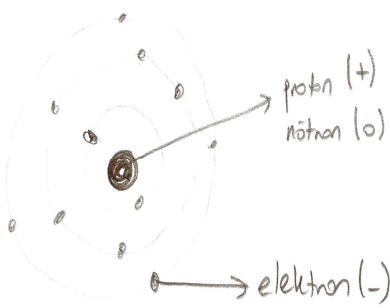 proton (+)
nötron (0)
elektron (-)